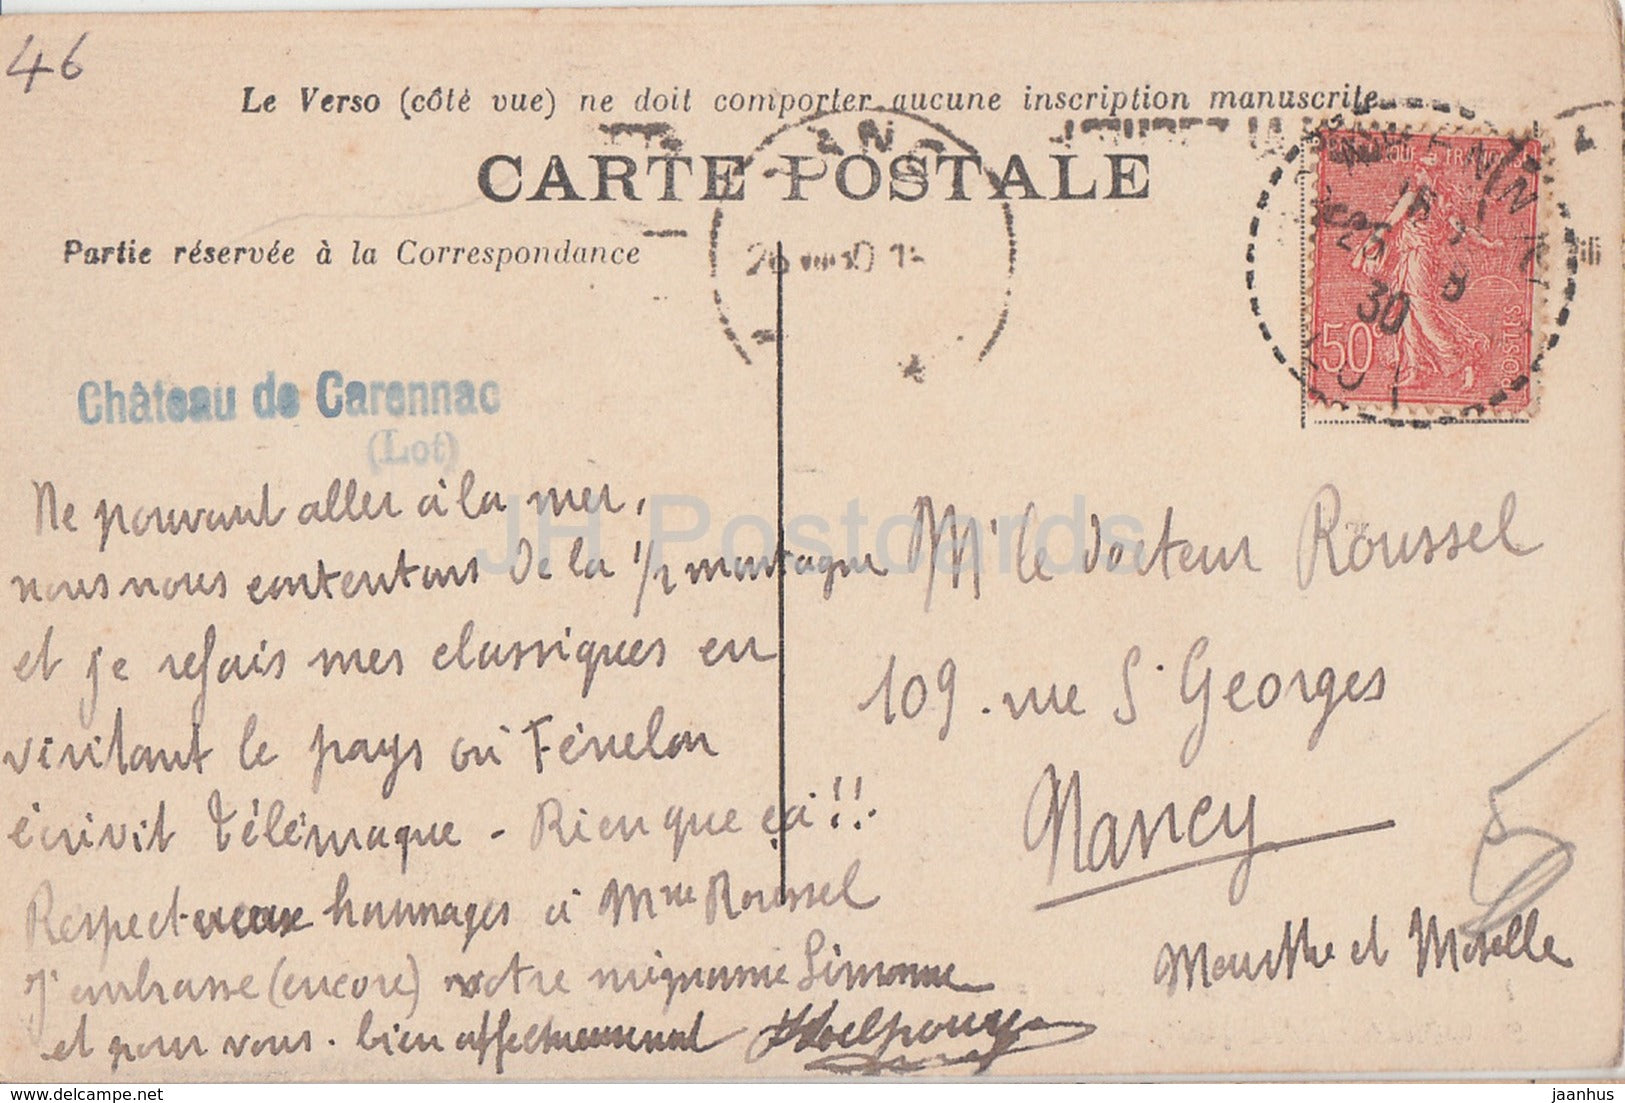 46
Le Verso (côté vue) ne doit comporter aucune inscription manuscrite
CARTE POSTALE
Partie réservée à la Correspondance
Château de Carennac
(Lot)
Ne pouvant aller à la mer,
nous nous contentons de la 1/2 montagne
et je refais mes classiques en
visitant le pays où Fénelon
écrivit Télémaque - Rien que ça !!.
Respectueux hommages à Mme Roussel
J'embrasse (encore) votre mignonne Simonne
et pour vous. bien affectueusement
Mr le Docteur Roussel
109. rue St Georges
Nancy
Meurthe et Moselle
50c
POSTES
25
8
30
JH Postcards
jaanhus